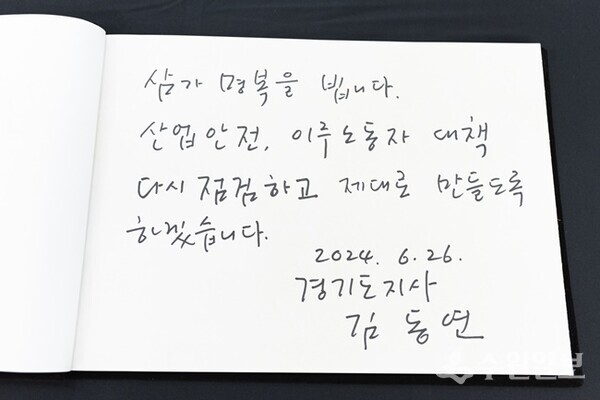 삼가 명복을 빕니다.
산업안전, 이주노동자 대책
다시 점검하고 제대로 만들도록
하겠습니다.
2024. 6.26.
경기도지사
김동연
수원일보